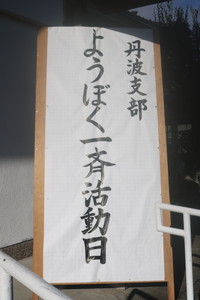 丹波支部
ようぼく一斉活動日